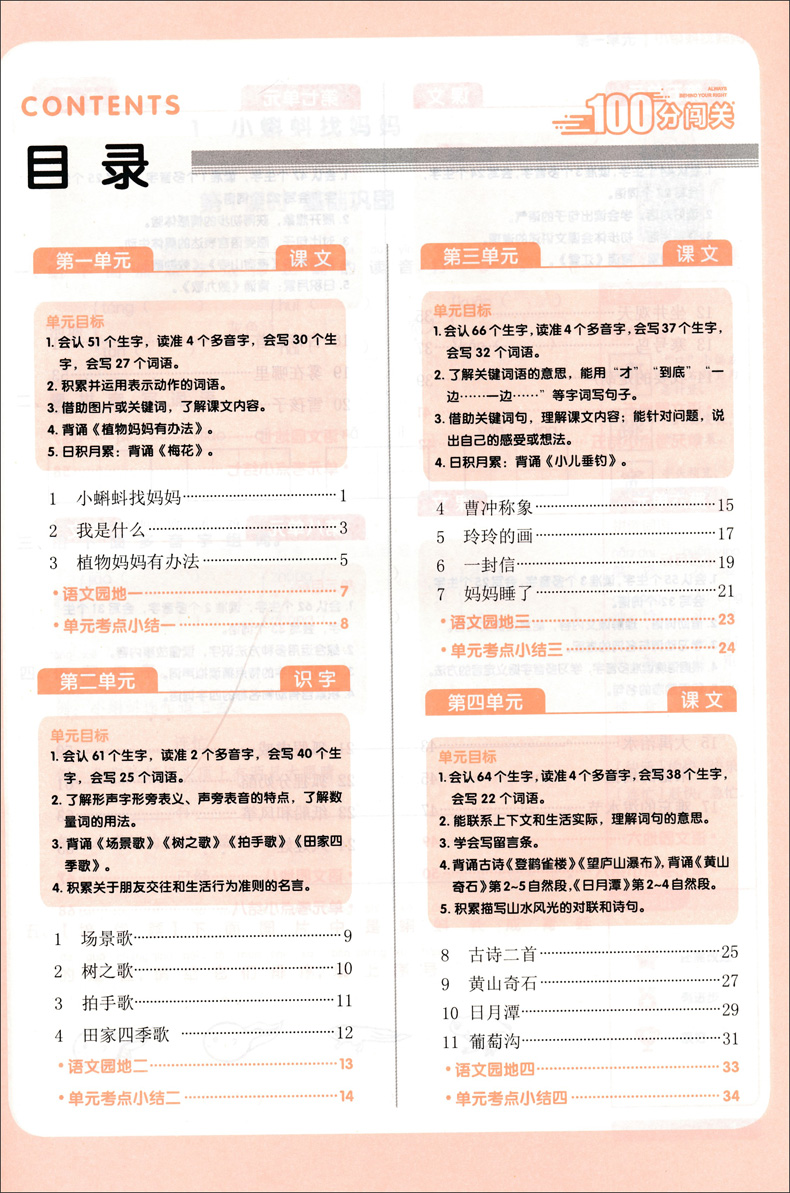 CONTENTS
目录
ALWAYS
BEHIND YOUR RIGHT
100分闯关
第一单元 课文
单元目标
1. 会认 51 个生字，读准 4 个多音字，会写 30 个生
字，会写 27 个词语。
2. 积累并运用表示动作的词语。
3. 借助图片或关键词，了解课文内容。
4. 背诵《植物妈妈有办法》。
5. 日积月累：背诵《梅花》。
1 小蝌蚪找妈妈……………………………1
2 我是什么……………………………3
3 植物妈妈有办法……………………………5
·语文园地一……………………………7
·单元考点小结一……………………………8
第二单元 识字
单元目标
1. 会认 61 个生字，读准 2 个多音字，会写 40 个生
字，会写 25 个词语。
2. 了解形声字形旁表义、声旁表音的特点，了解数
量词的用法。
3. 背诵《场景歌》《树之歌》《拍手歌》《田家四
季歌》。
4. 积累关于朋友交往和生活行为准则的名言。
1 场景歌……………………………9
2 树之歌……………………………10
3 拍手歌……………………………11
4 田家四季歌……………………………12
·语文园地二……………………………13
·单元考点小结二……………………………14
第三单元 课文
单元目标
1. 会认 66 个生字，读准 4 个多音字，会写 37 个生字，
会写 32 个词语。
2. 了解关键词语的意思，能用“才”“到底”“一
边……一边……”等字词写句子。
3. 借助关键词句，理解课文内容；能针对问题，说
出自己的感受或想法。
4. 日积月累：背诵《小儿垂钓》。
4 曹冲称象……………………………15
5 玲玲的画……………………………17
6 一封信……………………………19
7 妈妈睡了……………………………21
·语文园地三……………………………23
·单元考点小结三……………………………24
第四单元 课文
单元目标
1. 会认 64 个生字，读准 4 个多音字，会写 38 个生字，
会写 22 个词语。
2. 能联系上下文和生活实际，理解词句的意思。
3. 学会写留言条。
4. 背诵古诗《登鹳雀楼》《望庐山瀑布》，背诵《黄山
奇石》第 2~5 自然段，《日月潭》第 2~4 自然段。
5. 积累描写山水风光的对联和诗句。
8 古诗二首……………………………25
9 黄山奇石……………………………27
10 日月潭……………………………29
11 葡萄沟……………………………31
·语文园地四……………………………33
·单元考点小结四……………………………34